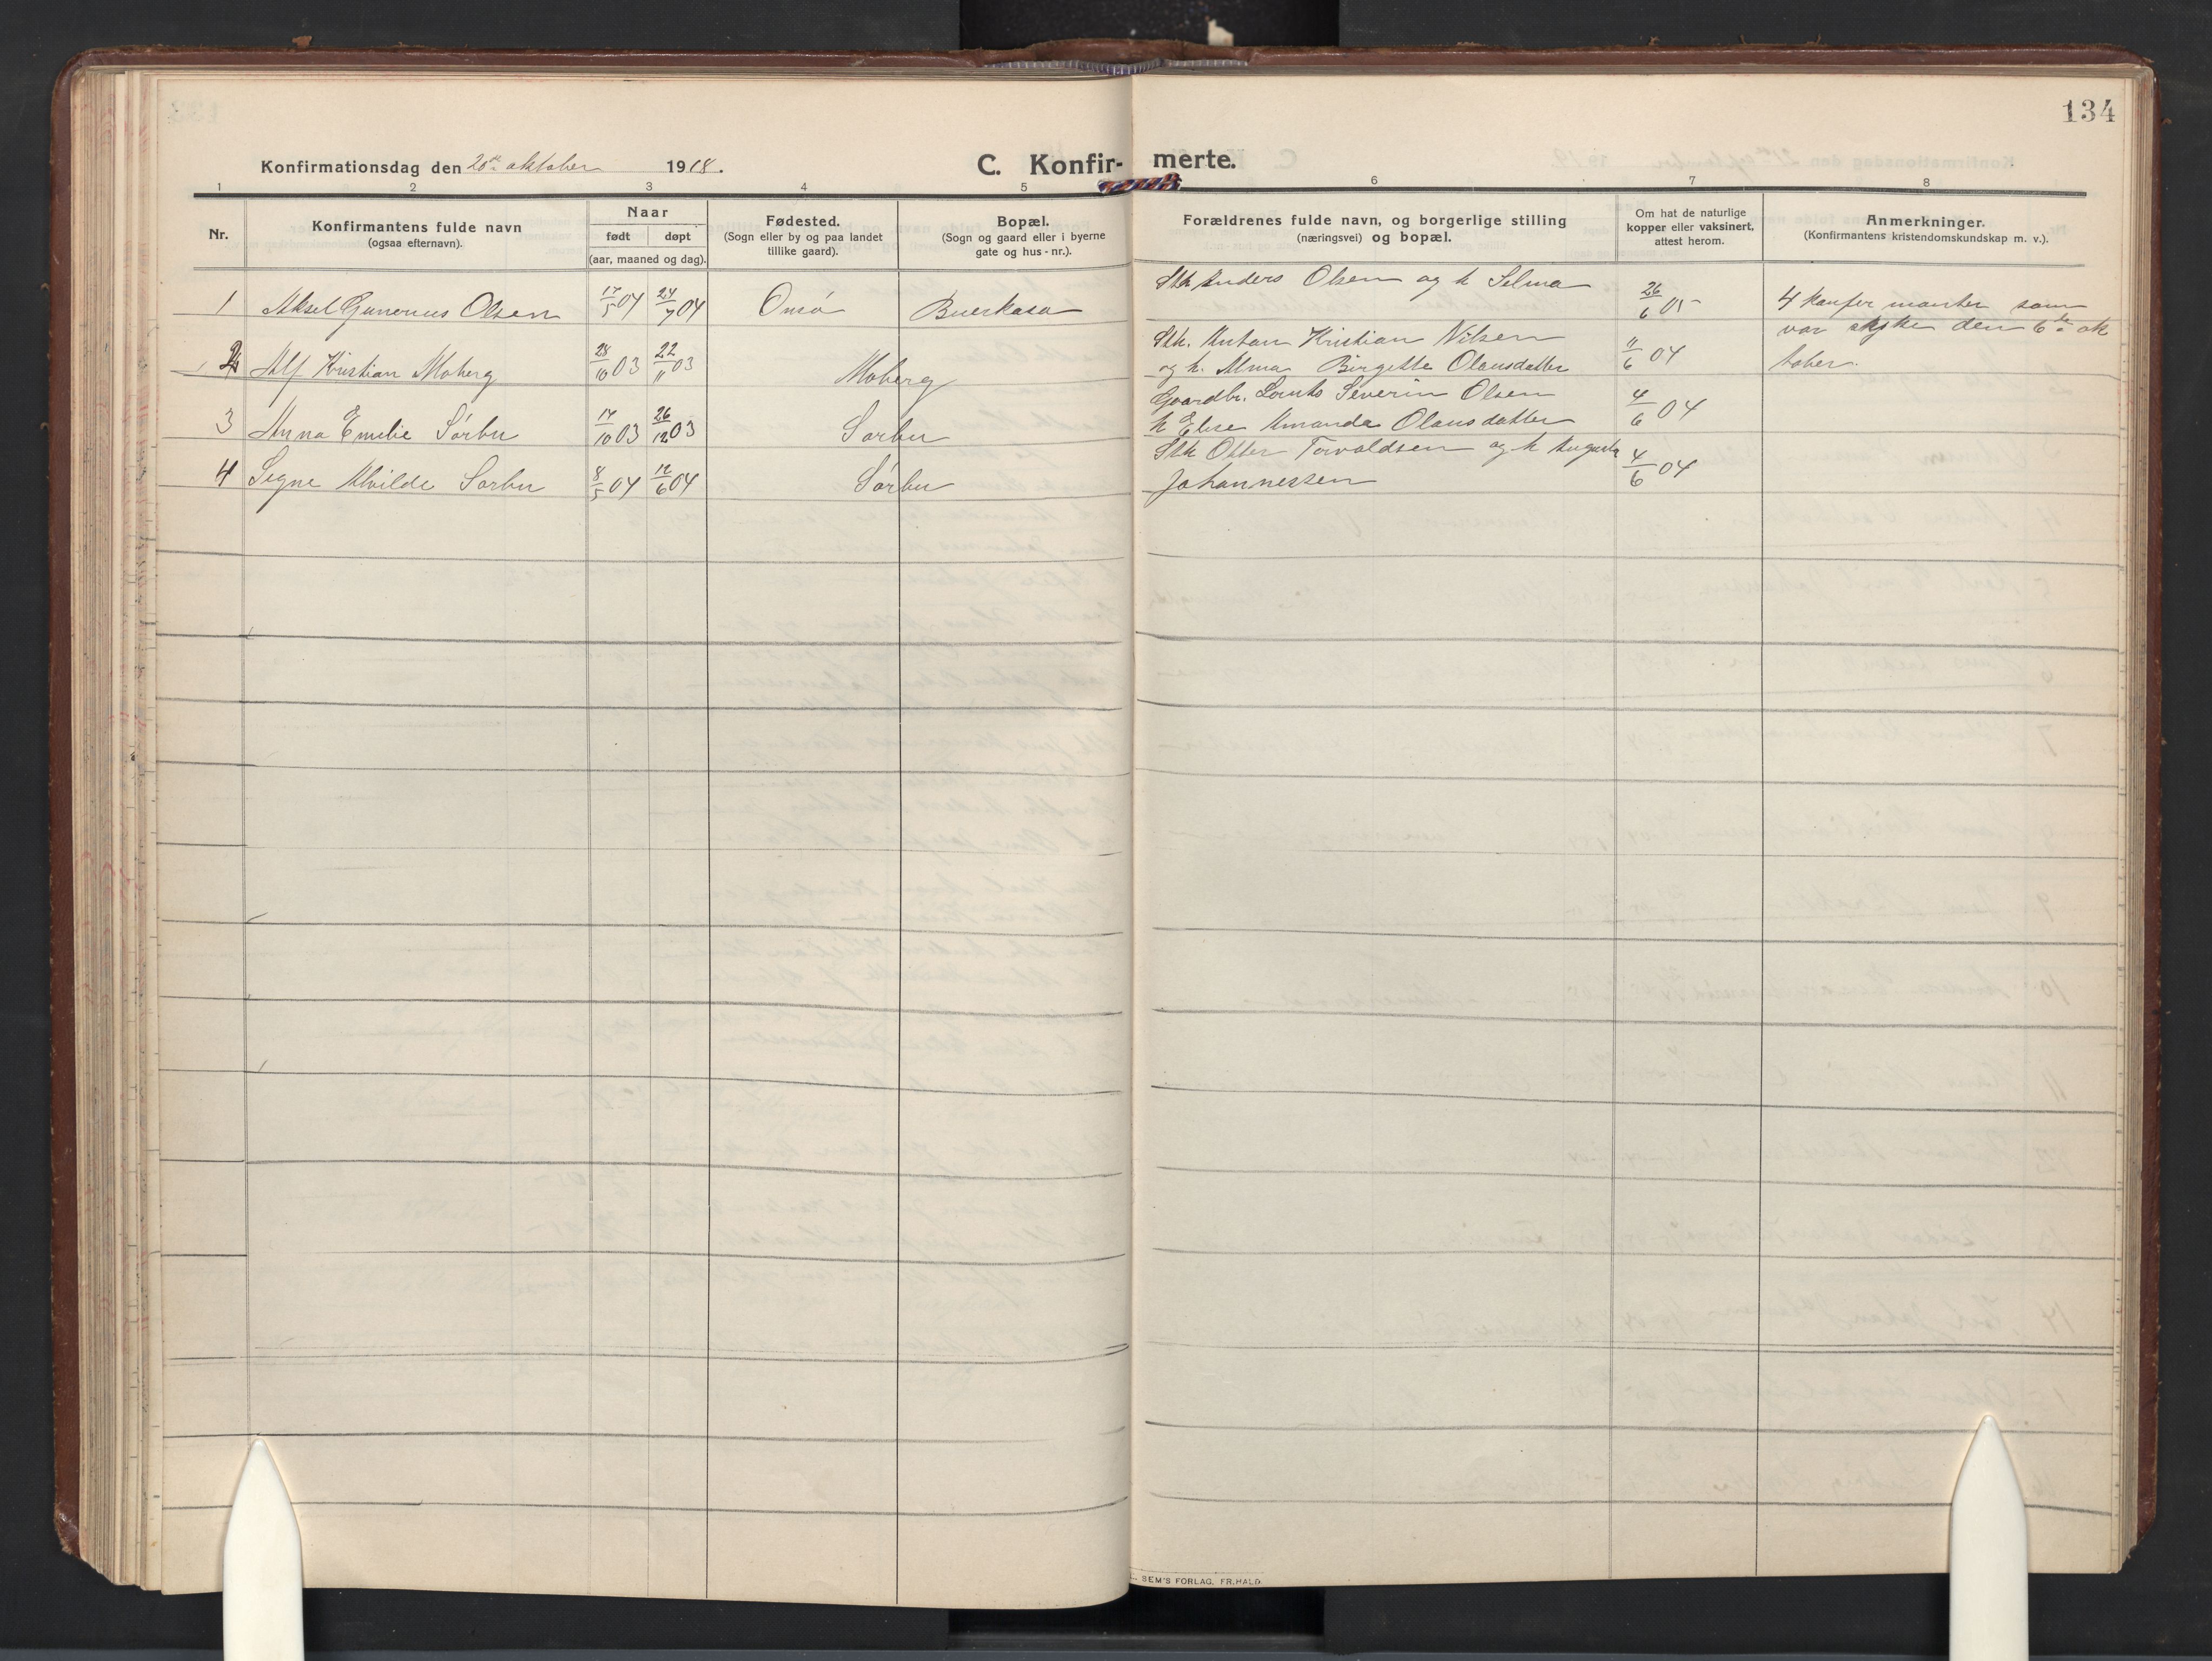 134
Konfirmationsdag den 20de oktober 1918.
C. Konfir- merte.
1 2 3 4 5 6 7 8
Nr.
Konfirmantens fulde navn
(ogsaa efternavn).
Naar
født døpt
(aar, maaned og dag).
Fødested.
(Sogn eller by og paa landet
tillike gaard).
Bopæl.
(Sogn og gaard eller i byerne
gate og hus-nr.).
Forældrenes fulde navn, og borgerlige stilling
(næringsvei) og bopæl.
Om hat de naturlige
kopper eller vaksinert,
attest herom.
Anmerkninger.
(Konfirmantens kristendomskundskap m. v.).
1 Aksel Gunerius Olsen 17/5 04 24/7 04 Onsø Buerkasa
Stk Anders Olsen og h Selma
26/6 05
2 Alf Kristian Moberg 28/10 03 22/11 03 Moberg
Stk. Antan Kristian Nilsen
og h. Alma Birgette Olausdatter
11/6 04
3 Anna Emilie Sørbu 17/10 03 26/12 03 Sørbu
Gaardbr. Severin Olsen
h Elise Amanda Olausdatter
4/6 04
4 Segne Alvilde Sørbu 8/5 04 12/6 04 Sørbu
Stk Otter Torvaldsen og h Augusta
Johannessen
4/6 04
4 Konfermanter som
var syke den 6te ok
tober.
BEM'S FORLAG, FR.HALD